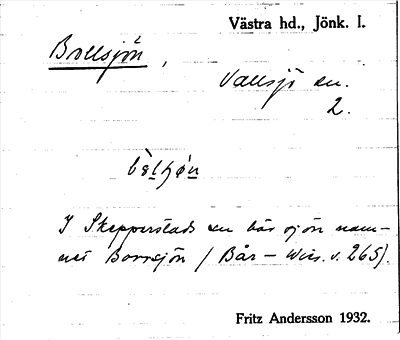 Västra hd., Jönk. l.
Bollsjön,
Vallsjö sn.
2.
I Skepperstads sn bär sjön nam-
net Borrsjön (Bår- Wies. v. 265).
Fritz Andersson 1932.